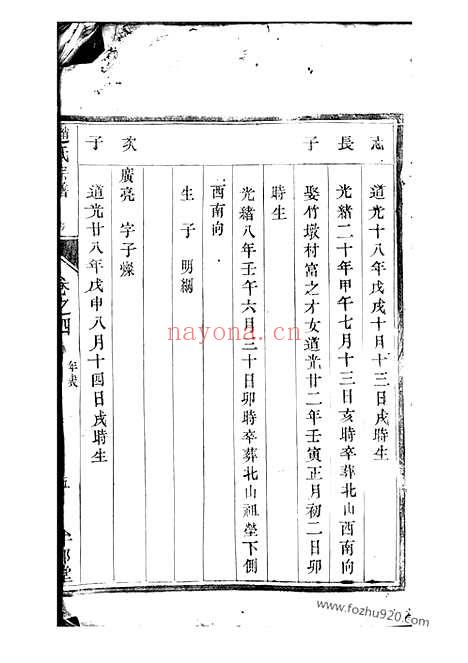 志 道光十八年戊戌十月十三日戌時生
長 光緒二十年甲午七月十三日亥時卒葬北山西南向
子 娶竹墩村富之才女道光廿二年壬寅正月初二日卯
時生
光緒八年壬午六月三十日卯時卒葬北山祖塋下側
酉南向
生子 明綱
次 廣亮 字子燦
子 道光廿八年戊申八月十四日戌時生
氏宗譜
卷之四
年表
五
nayona.cn
www.fozhu920.com